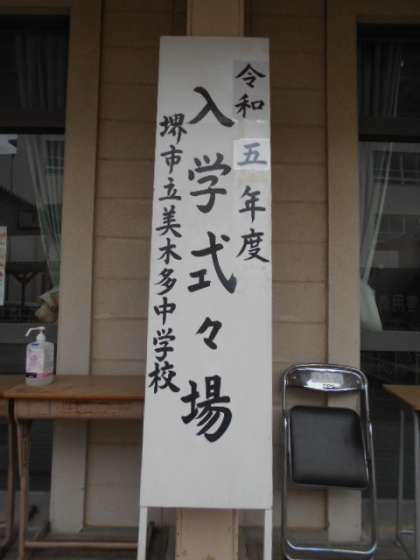 令和五年度
入学式々場
堺市立美木多中学校